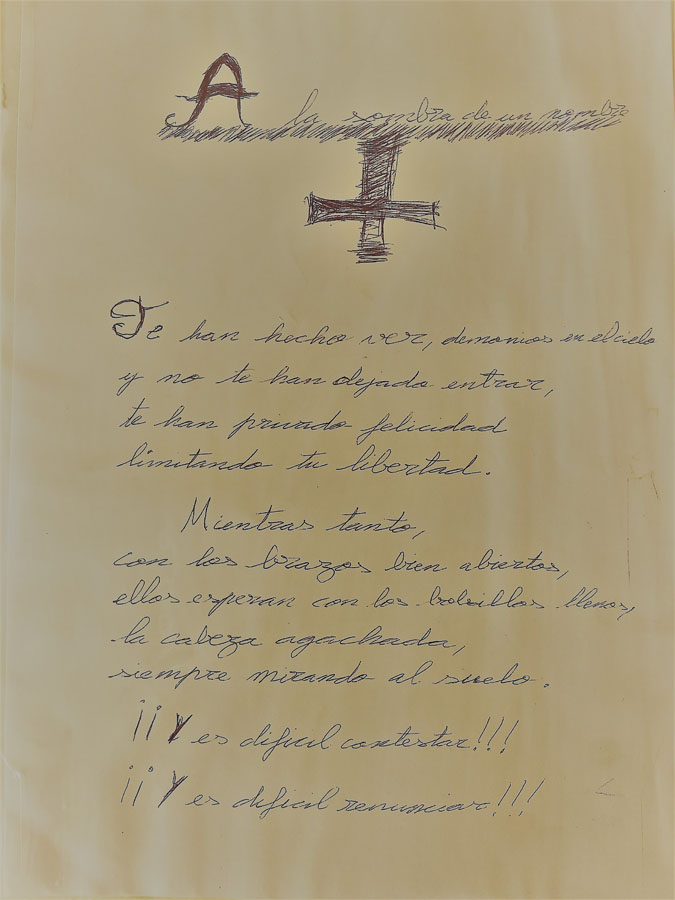 A la sombra de un nombre
Te han hecho ver, demonios en el cielo
y no te han dejado entrar,
te han privado felicidad
limitando tu libertad.
Mientras tanto,
con los brazos bien abiertos,
ellos esperan con los bolsillos llenos,
la cabeza agachada,
siempre mirando al suelo.
¡¡Y es dificil contestar!!!
¡¡Y es dificil renunciar!!!